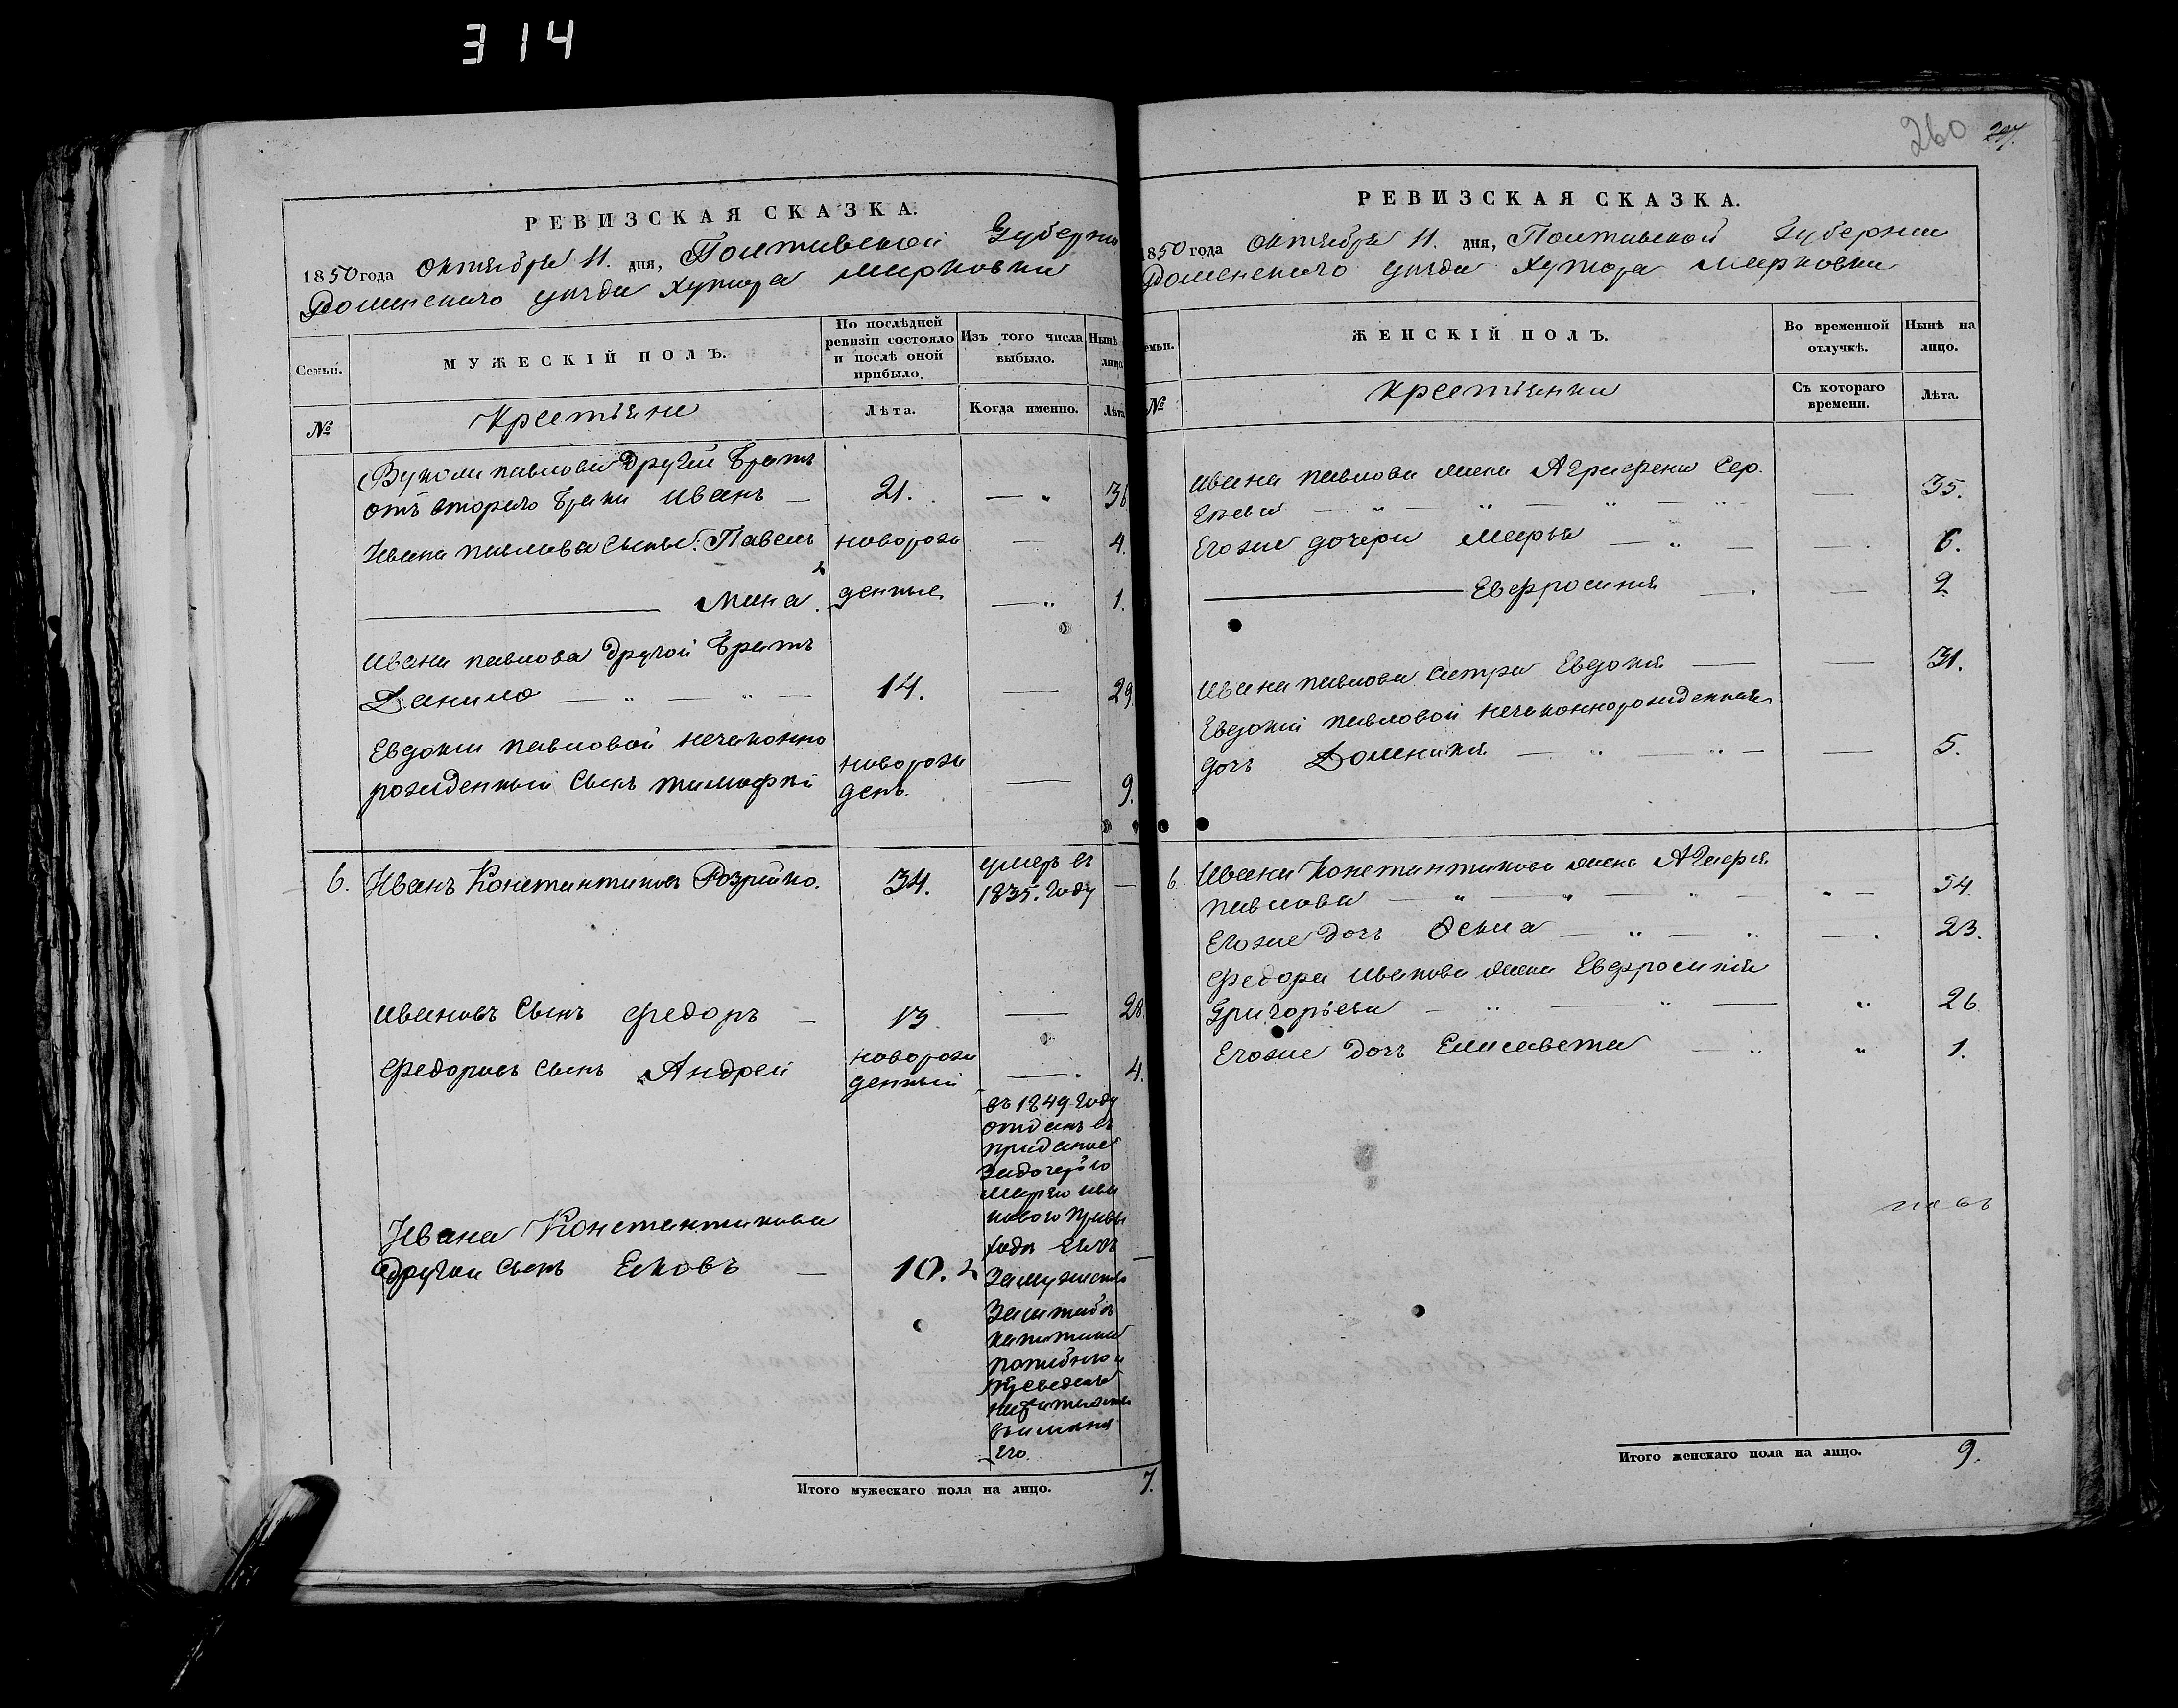 314
РЕВИЗСКАЯ СКАЗКА.
1850 года Октября 11. дня, Полтавской Губерніи
Роменскаго уезда хутора Марковки
Семьи.
МУЖЕСКІЙ ПОЛЪ.
По послѣдней ревизіи состояло и послѣ оной прибыло.
Изъ того числа выбыло.
Нынѣ лицо
№
Крестьяне
Лѣта.
Когда именно.
Лѣта
Вукола павлова другой братъ
отъ втораго брака Иванъ — 21. — „ 36
Ивана павлова сынъ: Павелъ новорож — 4.
2 Мина. денные — „ 1.
Ивана павлова другой братъ
Данило — „ — „ — 14. — 29.
Евдокіи павловой незаконно новорож
рожденный сынъ тимофѣй денъ. — 9.
6. Иванъ Константиновъ Розрийко. 34. умеръ въ
1835. году —
Ивановъ сынъ Федоръ — 13 — 28.
Федоровъ сынъ Андрей новорож
денный — 4.
въ 1849 году
отданъ въ
приданое
за дочерью
Марьею
Ивана Константинова
другой сынъ Ековъ — 10. 2 —
замужество
за штабъ
капитана
его.
Итого мужескаго пола на лицо. 7.
260
РЕВИЗСКАЯ СКАЗКА.
1850 года Октября 11. дня, Полтавской Губерніи
Роменскаго уезда хутора Марковки
емьи.
ЖЕНСКІЙ ПОЛЪ.
Во временной отлучкѣ.
Нынѣ на лицо.
№
Крестьянки
Съ котораго времени.
Лѣта.
Ивана павлова жена Агрифена Сер.
гѣева — „ — „ — „ — „ — 35.
Егоже дочери Марья — „ — — . 6.
Евфросинія — . — 2
Ивана павлова систра Евдокія — — 31.
Евдокіи павловой незаконнорожденная
дочь Доменикія — „ — „ — — 5.
6. Ивана Константинова жена Агафія
павлова — „ — „ — „ — „ — 54.
Егоже дочь Ѳекла — „ — „ — . 23.
Федора Иванова жена Евфросинія
Григорьева — „ — „ — „ 26
Егоже дочь Елисавета — „ „ 1.
Итого женскаго пола на лицо. 9.